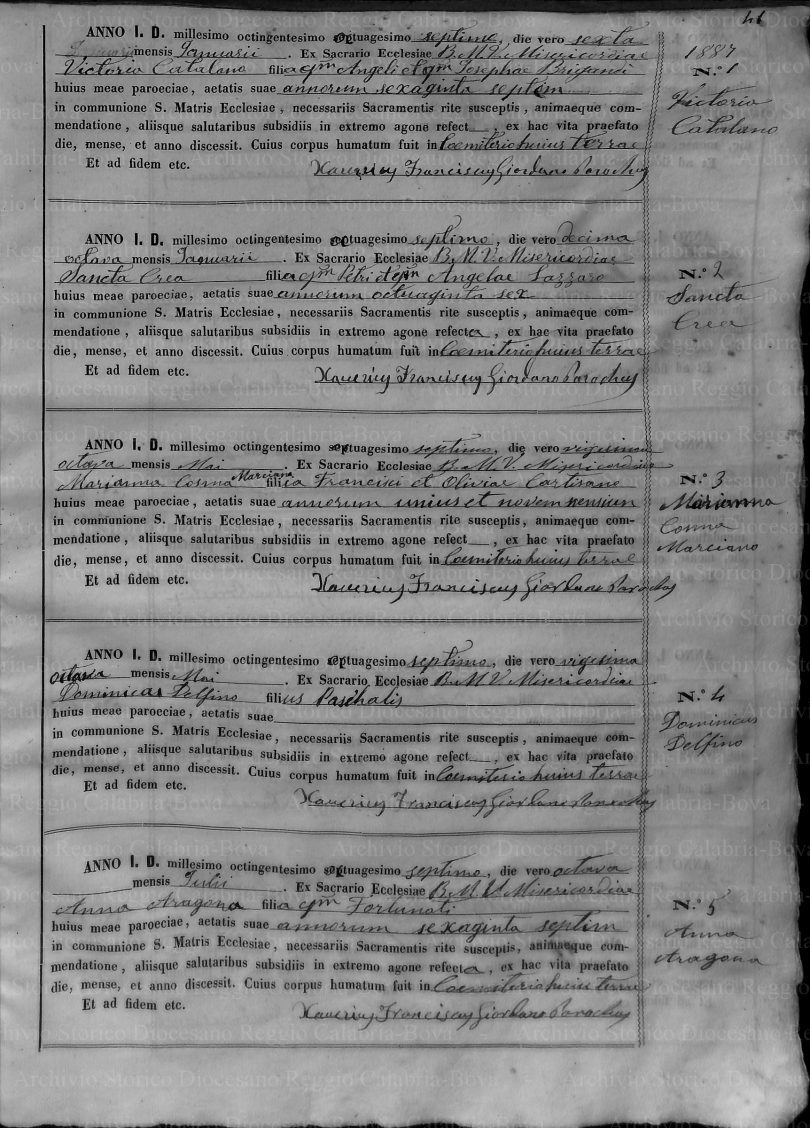 46
ANNO I. D. millesimo octingentesimo octuagesimo septimo, die vero sexta
mensis Januarii. Ex Sacrario Ecclesiae B. M. V. Misericordiae
Victoria Catalano filia qm Angeli et qm Josephae Brigandi
huius meae paroeciae, aetatis suae annorum sexaginta septem
in communione S. Matris Ecclesiae, necessariis Sacramentis rite susceptis, animaeque com-
mendatione, aliisque salutaribus subsidiis in extremo agone refect , ex hac vita praefato
die, mense, et anno discessit. Cuius corpus humatum fuit in Coemiterio huius terrae
Et ad fidem etc.
Xaverius Franciscus Giordano Parochus
1887
N.° 1
Victoria
Catalano
ANNO I. D. millesimo octingentesimo octuagesimo septimo, die vero decima
octava mensis Januarii. Ex Sacrario Ecclesiae B. M. V. Misericordiae
Sancta Crea filia qm Petri et qm Angelae Lazzaro
huius meae paroeciae, aetatis suae annorum octuaginta sex
in communione S. Matris Ecclesiae, necessariis Sacramentis rite susceptis, animaeque com-
mendatione, aliisque salutaribus subsidiis in extremo agone refecta, ex hac vita praefato
die, mense, et anno discessit. Cuius corpus humatum fuit in Coemiterio huius terrae
Et ad fidem etc.
Xaverius Franciscus Giordano Parochus
N.° 2
Sancta
Crea
ANNO I. D. millesimo octingentesimo octuagesimo septimo, die vero vigesima
octava mensis Mai. Ex Sacrario Ecclesiae B. M. V. Misericordiae
Marianna Cosma Marciano filia Francisci et Oliviae Cartisano
huius meae paroeciae, aetatis suae annorum unius et novem mensium
in communione S. Matris Ecclesiae, necessariis Sacramentis rite susceptis, animaeque com-
mendatione, aliisque salutaribus subsidiis in extremo agone refect , ex hac vita praefato
die, mense, et anno discessit. Cuius corpus humatum fuit in Coemiterio huius terrae
Et ad fidem etc.
Xaverius Franciscus Giordano Parochus
N.° 3
Marianna
Cosma
Marciano
ANNO I. D. millesimo octingentesimo octuagesimo septimo, die vero vigesima
octava mensis Mai. Ex Sacrario Ecclesiae B. M. V. Misericordiae
Dominicus Delfino filius Paschalis
huius meae paroeciae, aetatis suae
in communione S. Matris Ecclesiae, necessariis Sacramentis rite susceptis, animaeque com-
mendatione, aliisque salutaribus subsidiis in extremo agone refect , ex hac vita praefato
die, mense, et anno discessit. Cuius corpus humatum fuit in Coemiterio huius terrae
Et ad fidem etc.
Xaverius Franciscus Giordano Parochus
N.° 4
Dominicus
Delfino
ANNO I. D. millesimo octingentesimo octuagesimo septimo, die vero octava
mensis Julii. Ex Sacrario Ecclesiae B. M. V. Misericordiae
Anna Aragona filia qm Fortunati
huius meae paroeciae, aetatis suae annorum sexaginta septem
in communione S. Matris Ecclesiae, necessariis Sacramentis rite susceptis, animaeque com-
mendatione, aliisque salutaribus subsidiis in extremo agone refecta, ex hac vita praefato
die, mense, et anno discessit. Cuius corpus humatum fuit in Coemiterio huius terrae
Et ad fidem etc.
Xaverius Franciscus Giordano Parochus
N.° 5
Anna
Aragona